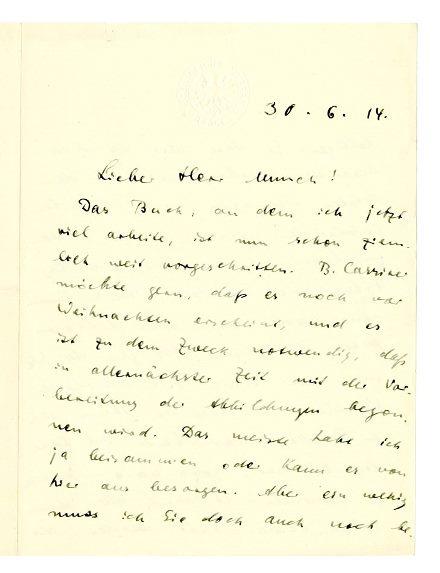 30. 6. 14.
Lieber Herr Munch!
Das Buch, an dem ich jetzt
viel arbeite, ist nun schon ziem-
lich weit vorgeschritten. B. Cassirer
möchte gern, daß es noch vor
Weihnachten erscheint, und es
ist zu dem Zweck notwendig, daß
in allernächster Zeit mit der Vor-
bereitung der Abbildungen begon-
nen wird. Das meiste habe ich
ja beisammen oder kann es von
hier aus besorgen. Aber ein wenig
muss ich Sie doch auch noch be-